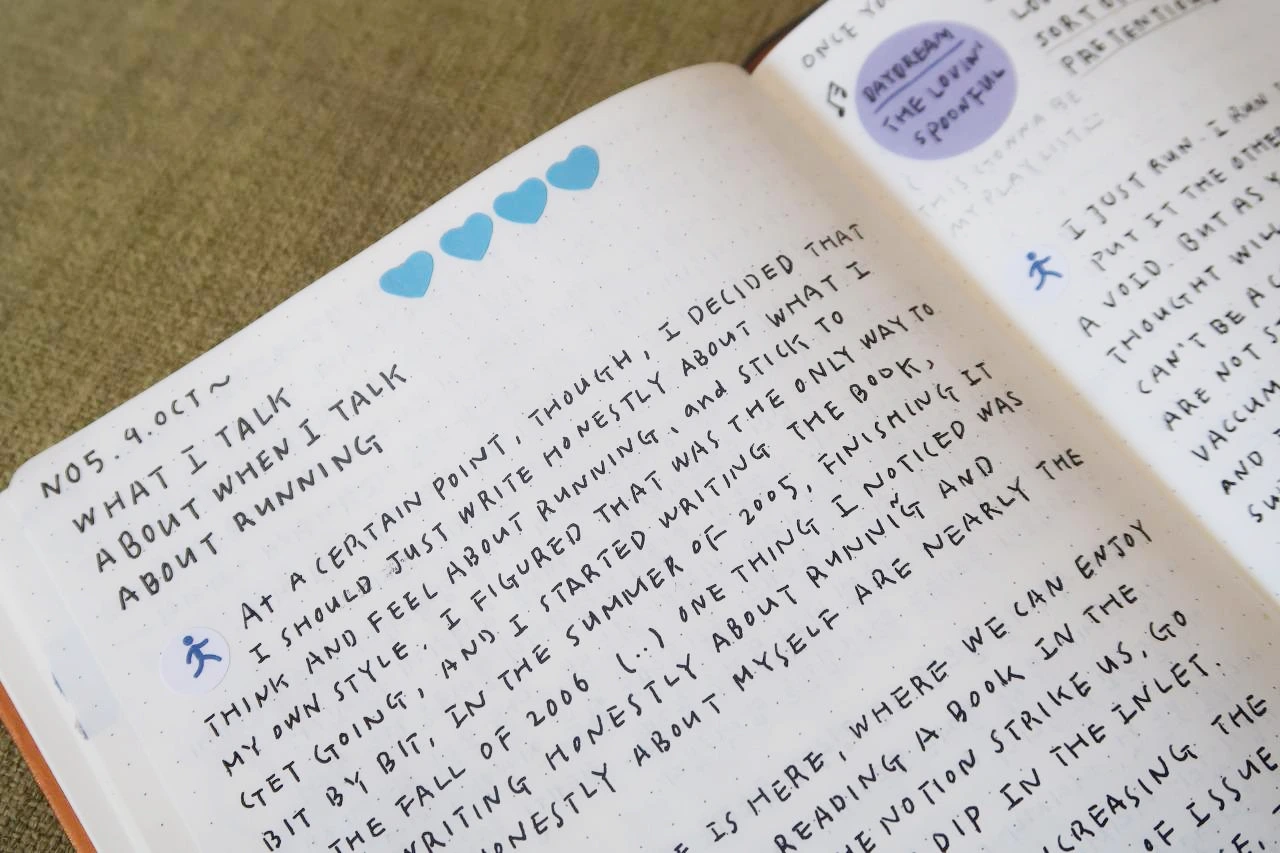 NO5. 9.OCT ~
WHAT I TALK
ABOUT WHEN I TALK
ABOUT RUNNING
At A CERTAIN POINT, THOUGH, I DECIDED THAT
I SHOULD JUST WRITE HONESTLY ABOUT WHAT I
THINK AND FEEL ABOUT RUNNING, and STICK TO
MY OWN STYLE. I FIGURED THAT WAS THE ONLY WAY TO
GET GOING, AND I STARTED WRITING THE BOOK,
BIT BY BIT, IN THE SUMMER OF 2005, FINISHING IT
THE FALL OF 2006 (..) ONE THING I NOTICED WAS
WRITING HONESTLY ABOUT RUNNIG AND
HONESTLY ABOUT MYSELF ARE NEARLY THE
IS HERE, WHERE WE CAN ENJOY
READING A BOOK IN THE
NOTION STRIKE US, GO
DIP IN THE INLET.
THE
OF ISSUE
ONCE
DAYDREAM
THE LOVIN'
SPOONFUL
SORT
PRETENTIOU
THIS GONNA BE
MY PLAYLIST
I JUST RUN. I RUN
PUT IT THE OTHE
A VOID. BUT AS
THOUGHT WILL
CAN'T BE A
ARE NOT
VACCUM
AND